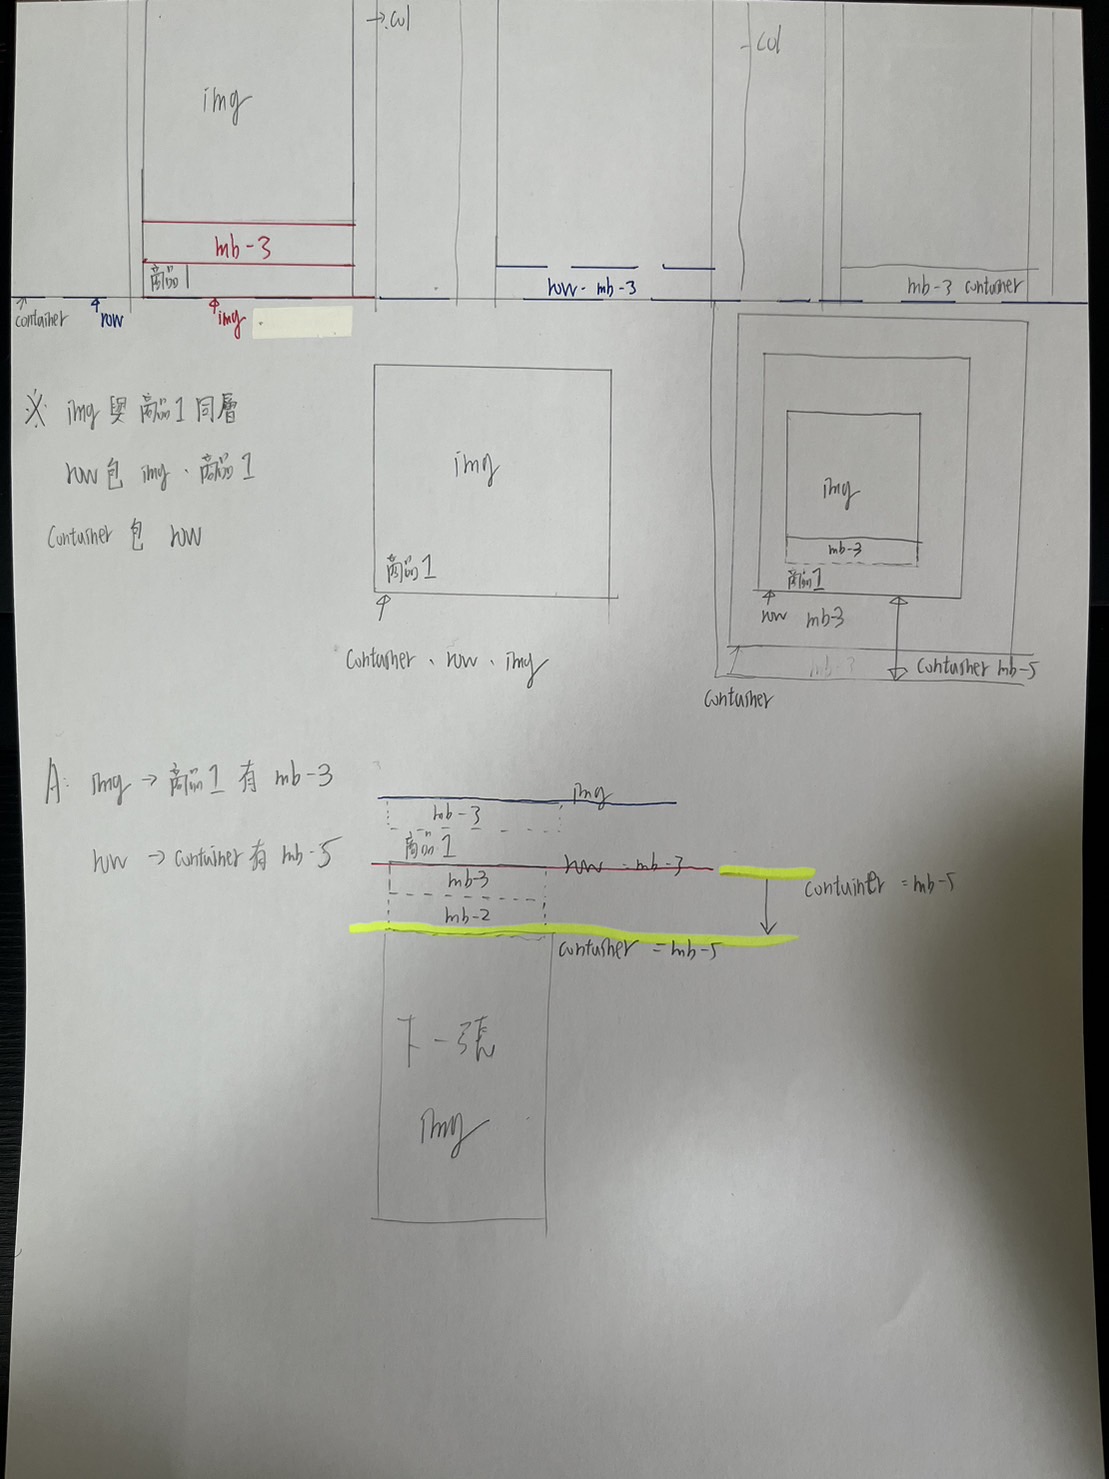 → col
col
img
mb-3
商品1
row - mb-3
mb-3 container
container
row
img
※ img與商品1同層
row包 img、商品1
Container 包 row
img
商品1
Container、row、img
img
mb-3
商品1
row mb-3
mb-3
Container mb-5
Container
A: img → 商品1 有 mb-3
row → container有 mb-5
img
mb-3
商品1
row = mb-3
mb-3
container = mb-5
mb-2
container = mb-5
下一張
img